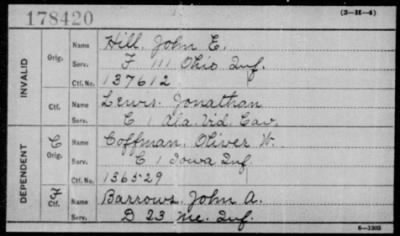 178420
(3-H-4)
INVALID
Orig.
Name Hill, John E.
Serv. F 111 Ohio Inf.
Ctf. No. 137612
Ctf.
Name Lewis, Jonathan
Serv. C 1 Vid. Cav.
DEPENDENT
C
Orig.
Name Coffman, Oliver W.
Serv. C 1 Iowa Inf.
Ctf. No. 136529
Ctf.
Name Barrows, John A.
Serv. D 23 Me. Inf.